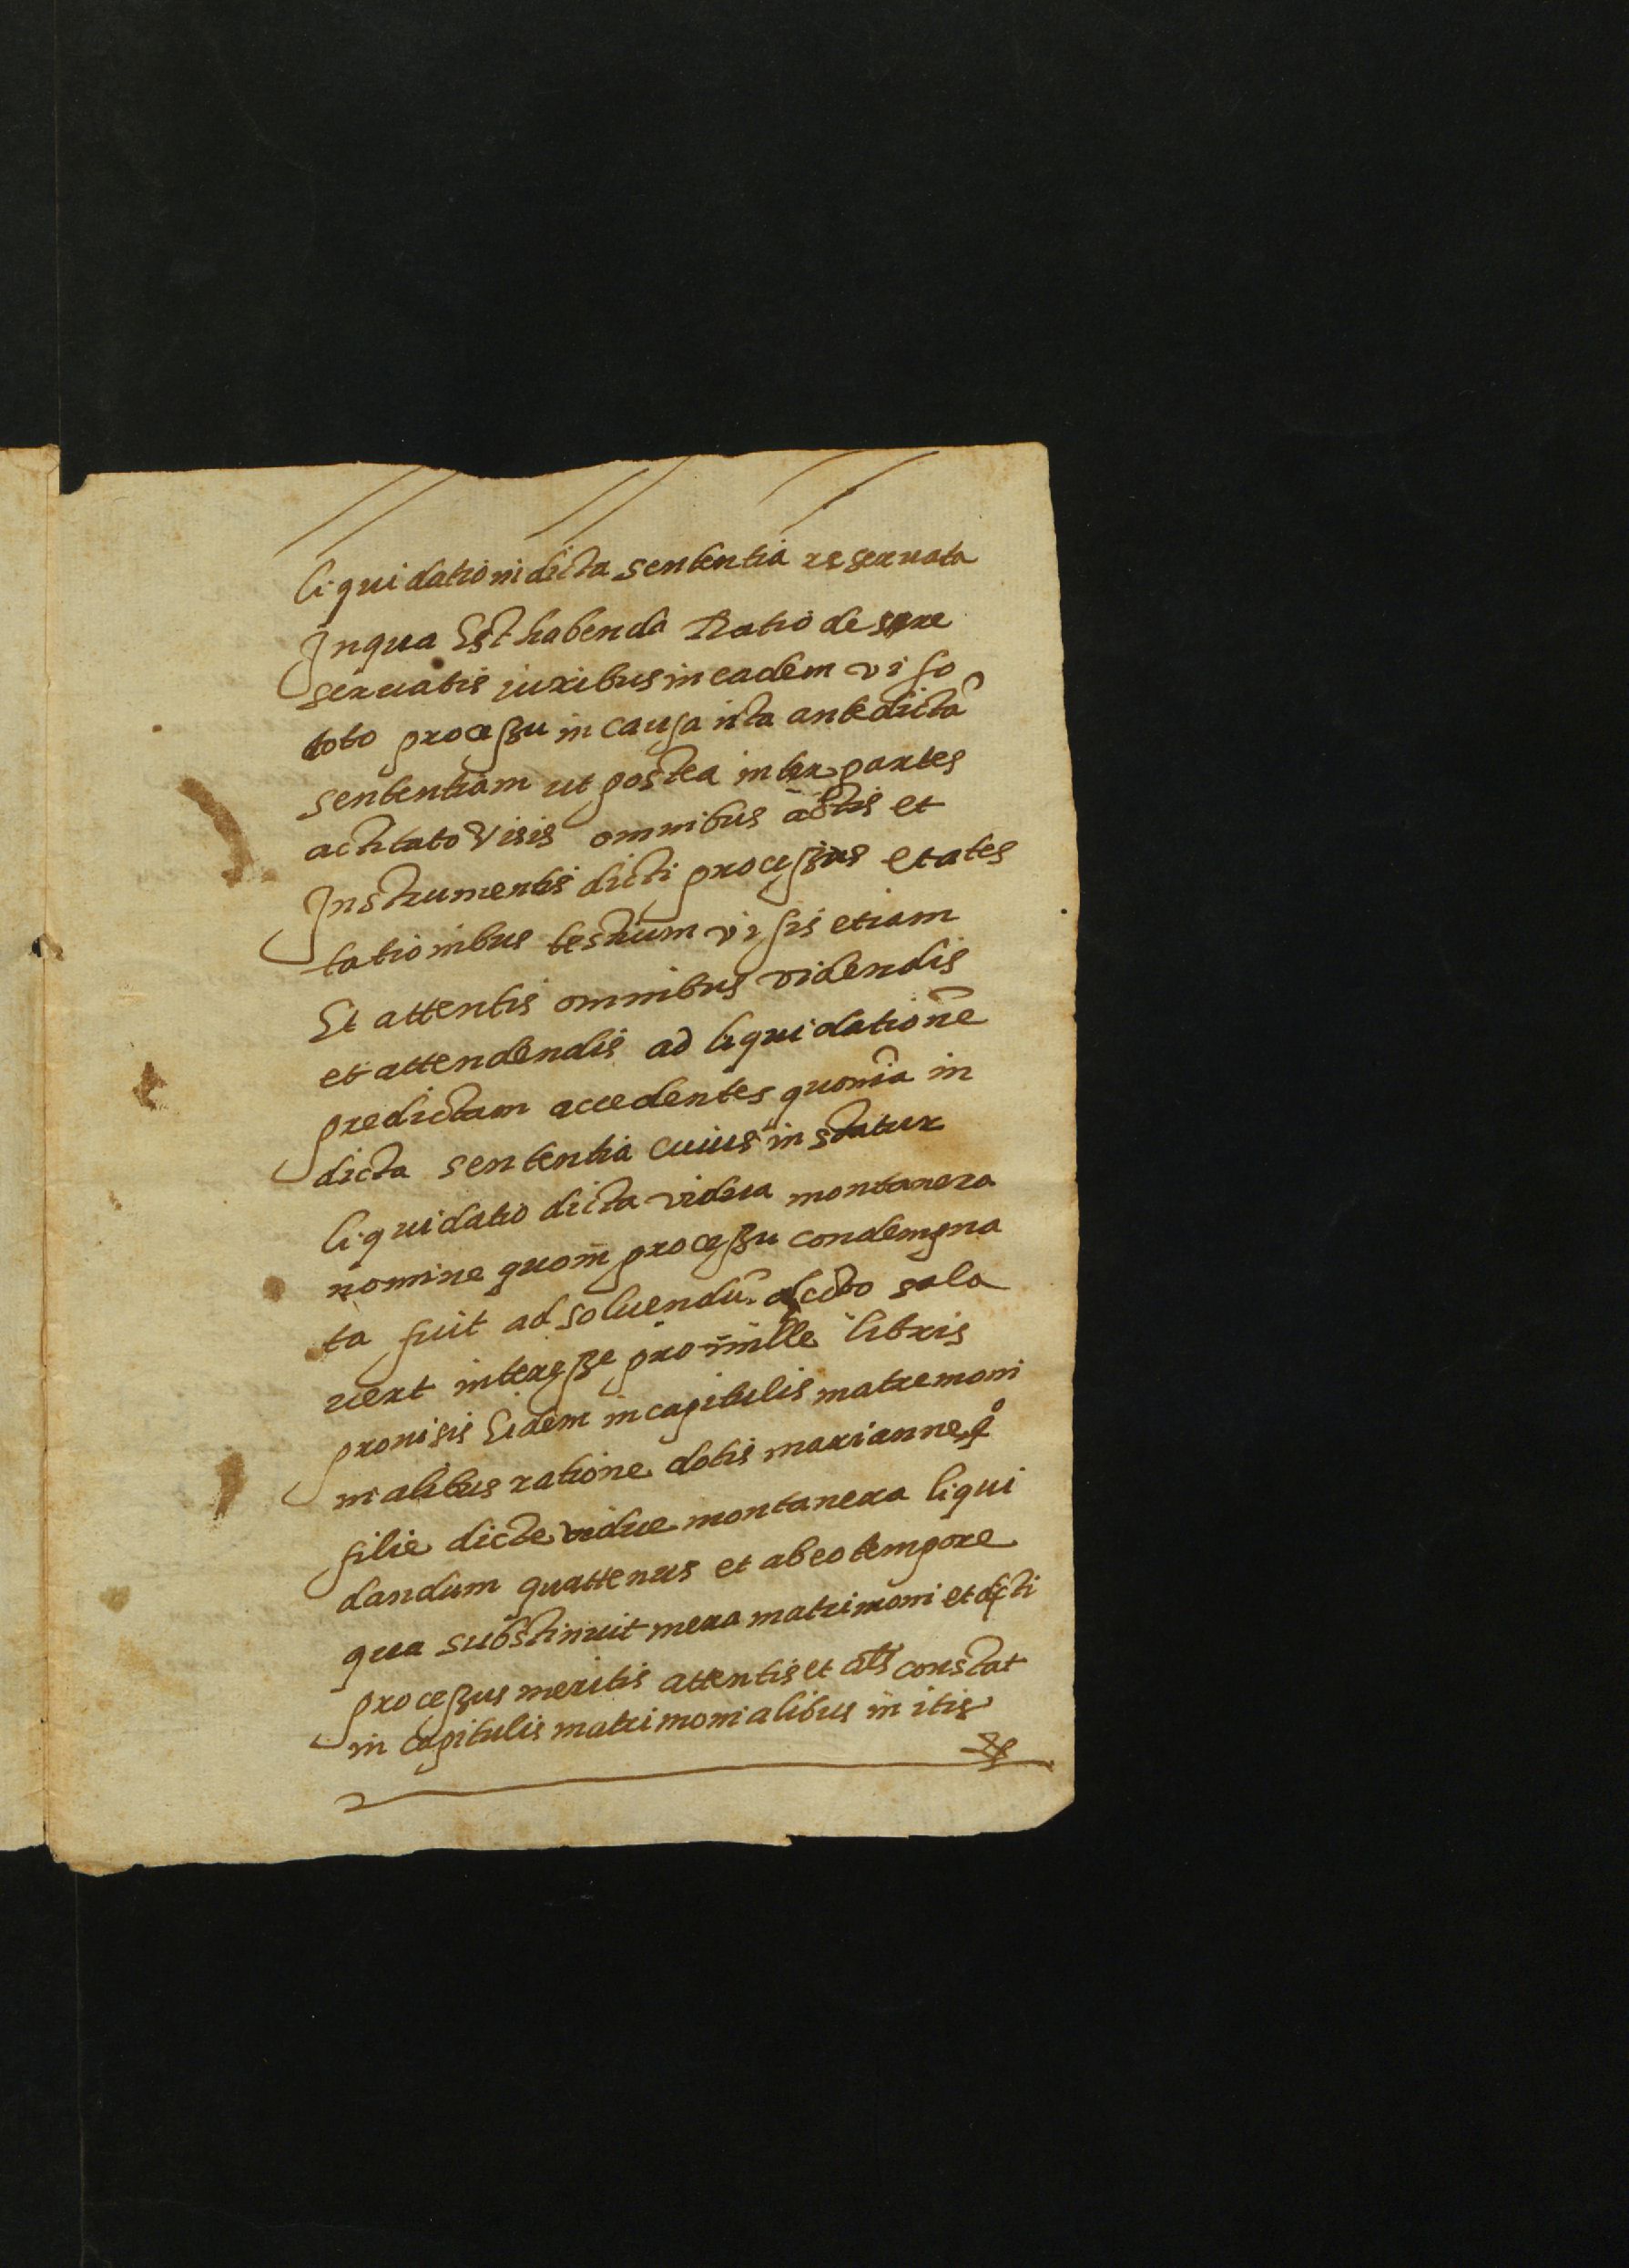 liquidationi dicta sententia reseruata
Inqua Est habenda Ratio de
seruatis iuribus in eadem viso
toto processu in causa ita antedictã
sententiam ut postea inter partes
actitato Visis omnibus actis et
Instrumentis dicti processus etates
tationibus testium visis etiam
Et attentis omnibus videndis
et attendendis ad liquidationẽ
predictam accedentes quoniã in
dicta sententia cuius instatur
liquidatio dicta vidua montanera
nomine quom̃ processu condempna
ta fuit ad soluendũ dicto sala
vert interesse pro mille libris
promisis Eidem in capitulis matremoni
nialibus ratione dotis marianne qº
filie dicte vidue montanera liqui
dandum quattenus et ab eo tempore
qua substinuit mera matrimoni et dicti
processus meritis attentis et constat
in capitulis matrimonialibus in itis